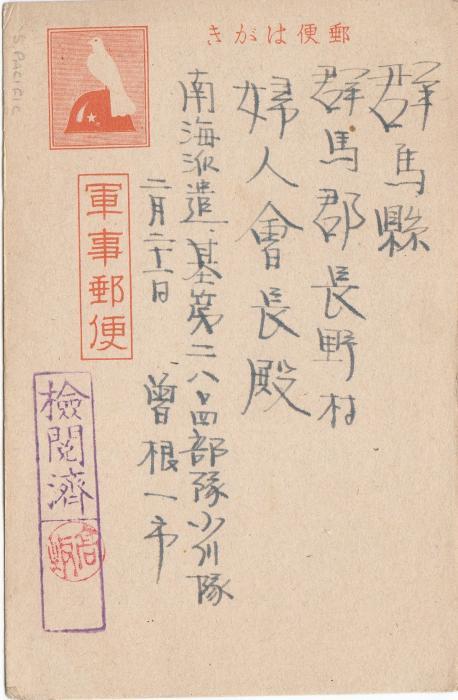 郵便はがき
群馬縣
群馬郡長野村
婦人會長殿
南海派遣基第二八四部隊小川隊
二月二十一日
曽根一市
軍事郵便
檢閲濟
S. PACIFIC